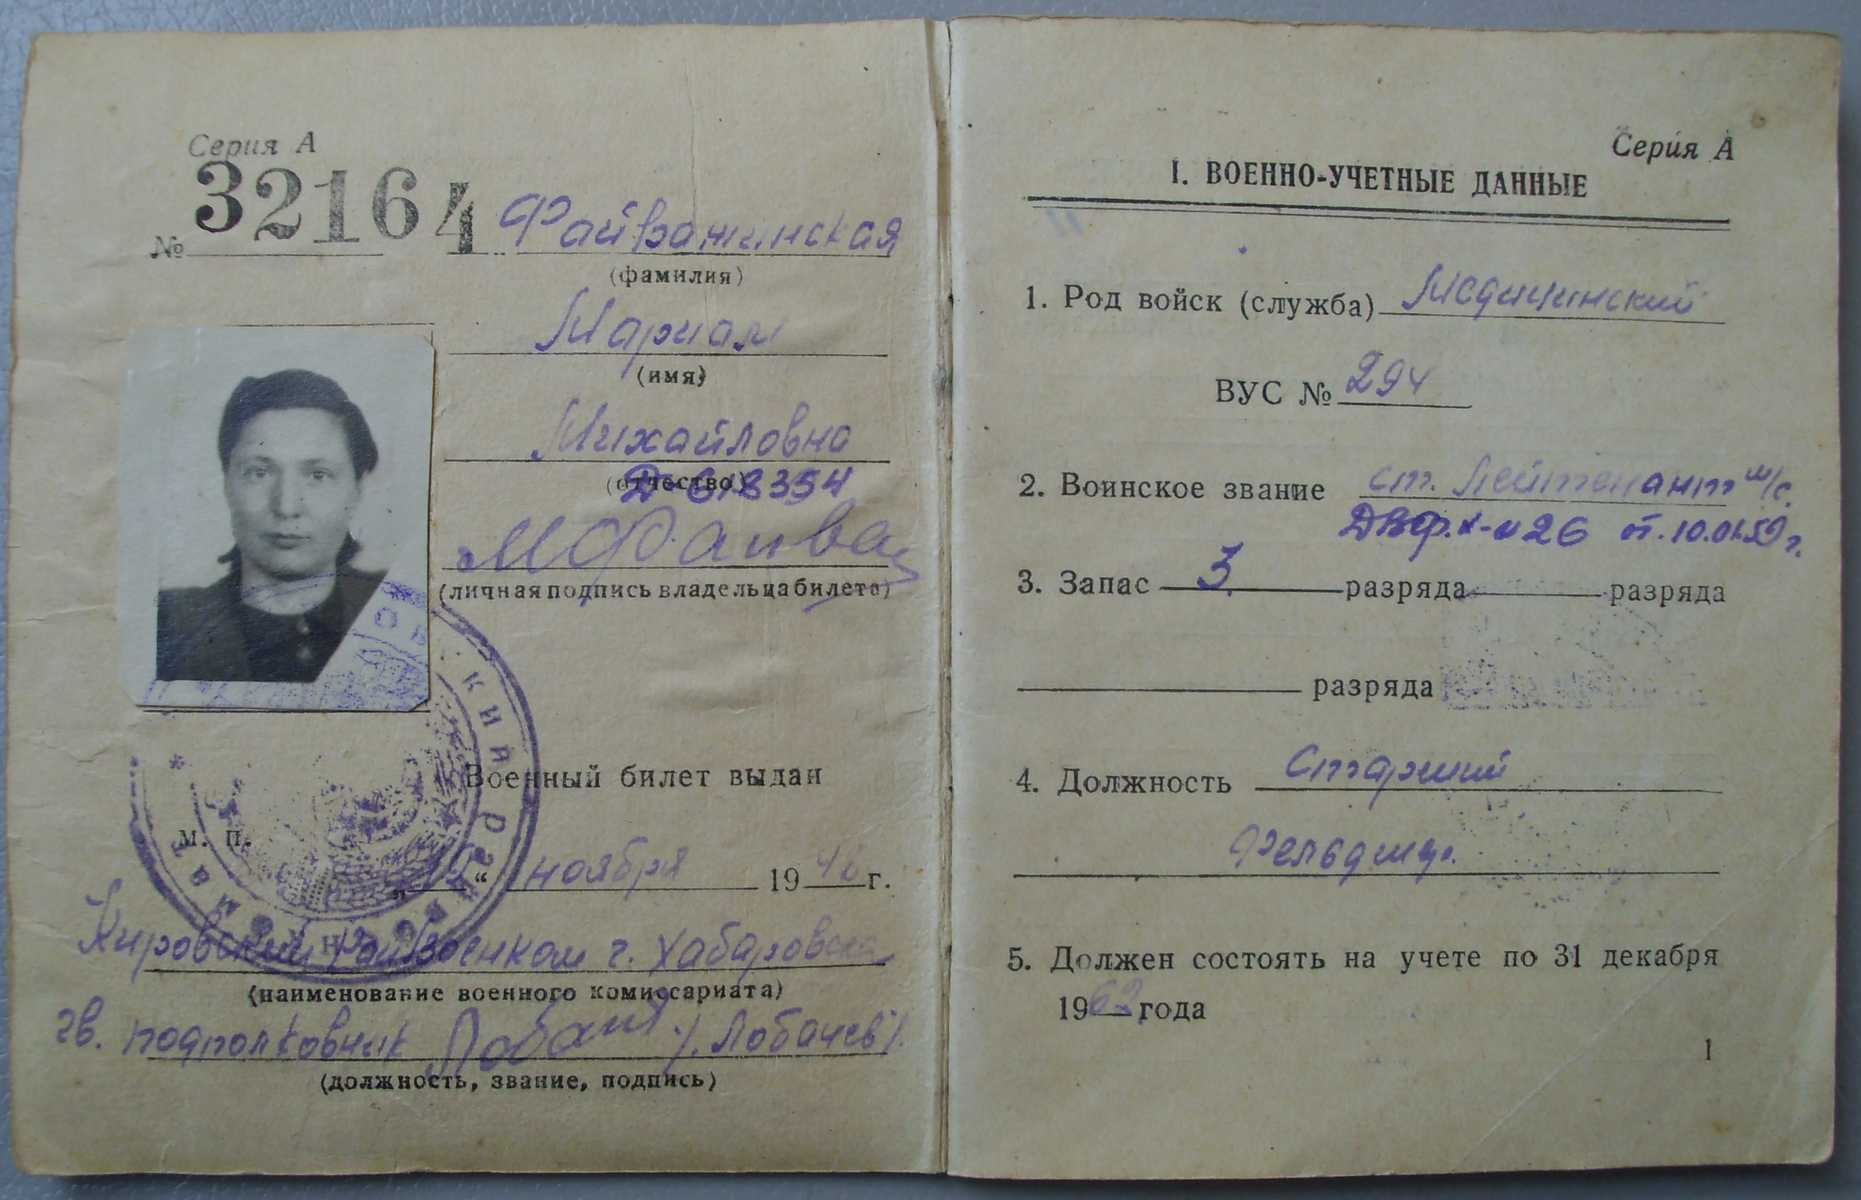 Серия А
№ 32164 Файважинская
(фамилия)
Мариам
(имя)
Михайловна
(отчество)
(личная подпись владельца билета)
Военный билет выдан
М. П.
„19“ ноября 1948 г.
Кировский Райвоенком г. Хабаровска
(наименование военного комиссариата)
гв. подполковник /Лобачев/.
(должность, звание, подпись)
Серия А
I. ВОЕННО-УЧЕТНЫЕ ДАННЫЕ
1. Род войск (служба) Медицинский
ВУС № 294
2. Воинское звание ст. Лейтенант м/с.
от. 10.01.50 г.
3. Запас 3 разряда разряда
разряда
4. Должность Старший
Фельдшер.
5. Должен состоять на учете по 31 декабря
1962 года
1